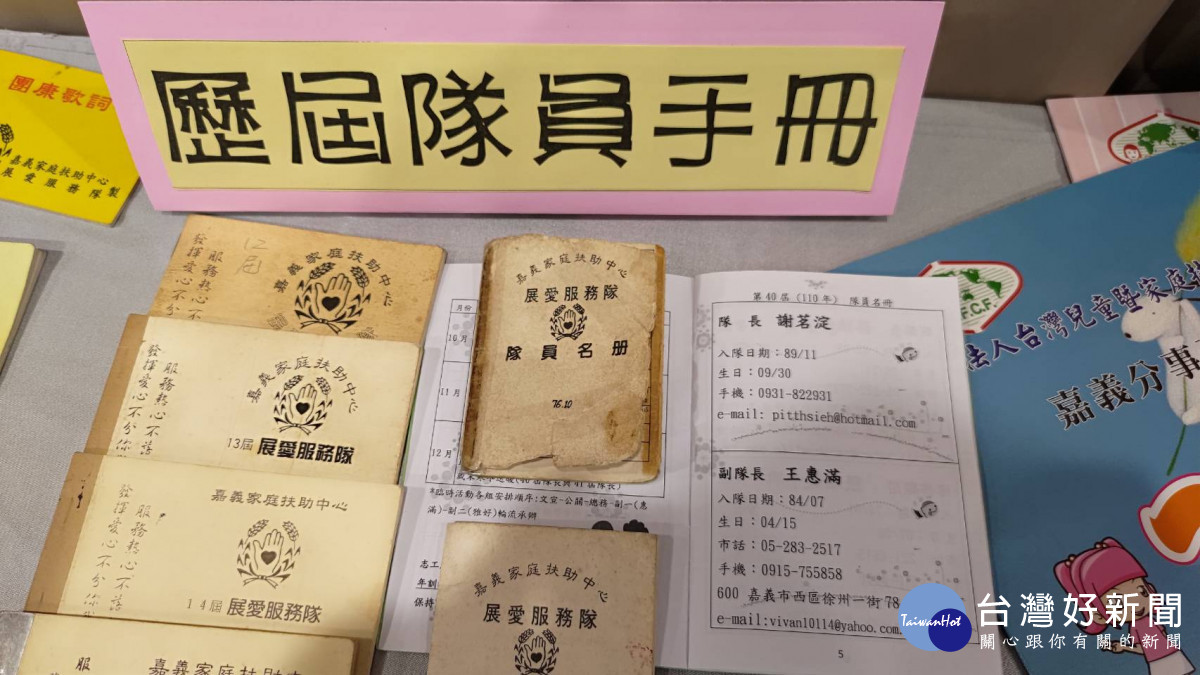 歷屆隊員手冊
團康歌詞
嘉義家庭扶助中心
展愛服務隊製
服務熱心不
發揮愛心不分
12屆
嘉義家庭扶助中心
服務熱心不落
發揮愛心不分你
嘉義家庭扶助中心
13屆 展愛服務隊
服務熱心不落
發揮愛心不分你
嘉義家庭扶助中心
14屆 展愛服務隊
服
嘉義家庭扶助中心
嘉義家庭扶助中心
展愛服務隊
隊員名冊
76.10
嘉義家庭扶助中心
展愛服務隊
月份
10月
11月
12月
*臨時活動各組安排順序:文宣-公關-總務-副一(惠
滿)-副二(雅好)輪流承辦
志工
年訓
保持
第40屆(110年) 隊員名冊
隊 長 謝茗淀
入隊日期:89/11
生日:09/30
手機:0931-822931
e-mail: pitthsieh@hotmail.com
副隊長 王惠滿
入隊日期:84/07
生日:04/15
市話:05-283-2517
手機:0915-755858
600 嘉義市西區徐州一街78
e-mail:vivan10114@yahoo.com.
5
F.C.F.
法人台灣兒童暨家庭扶
嘉義分事
TaiwanHot
台灣好新聞
關心跟你有關的新聞